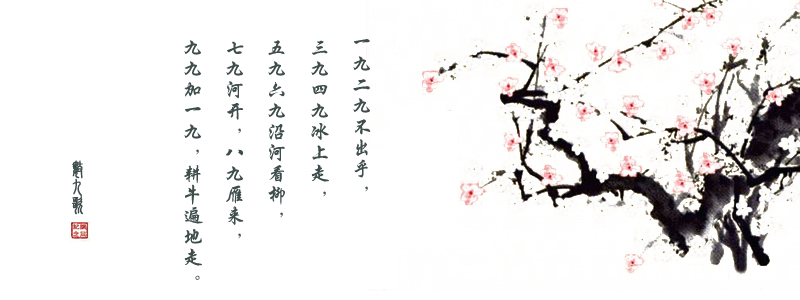 一九二九不出乎，
三九四九冰上走，
五九六九沿河看柳，
七九河开，八九雁来，
九九加一九，耕牛遍地走。
数九歌